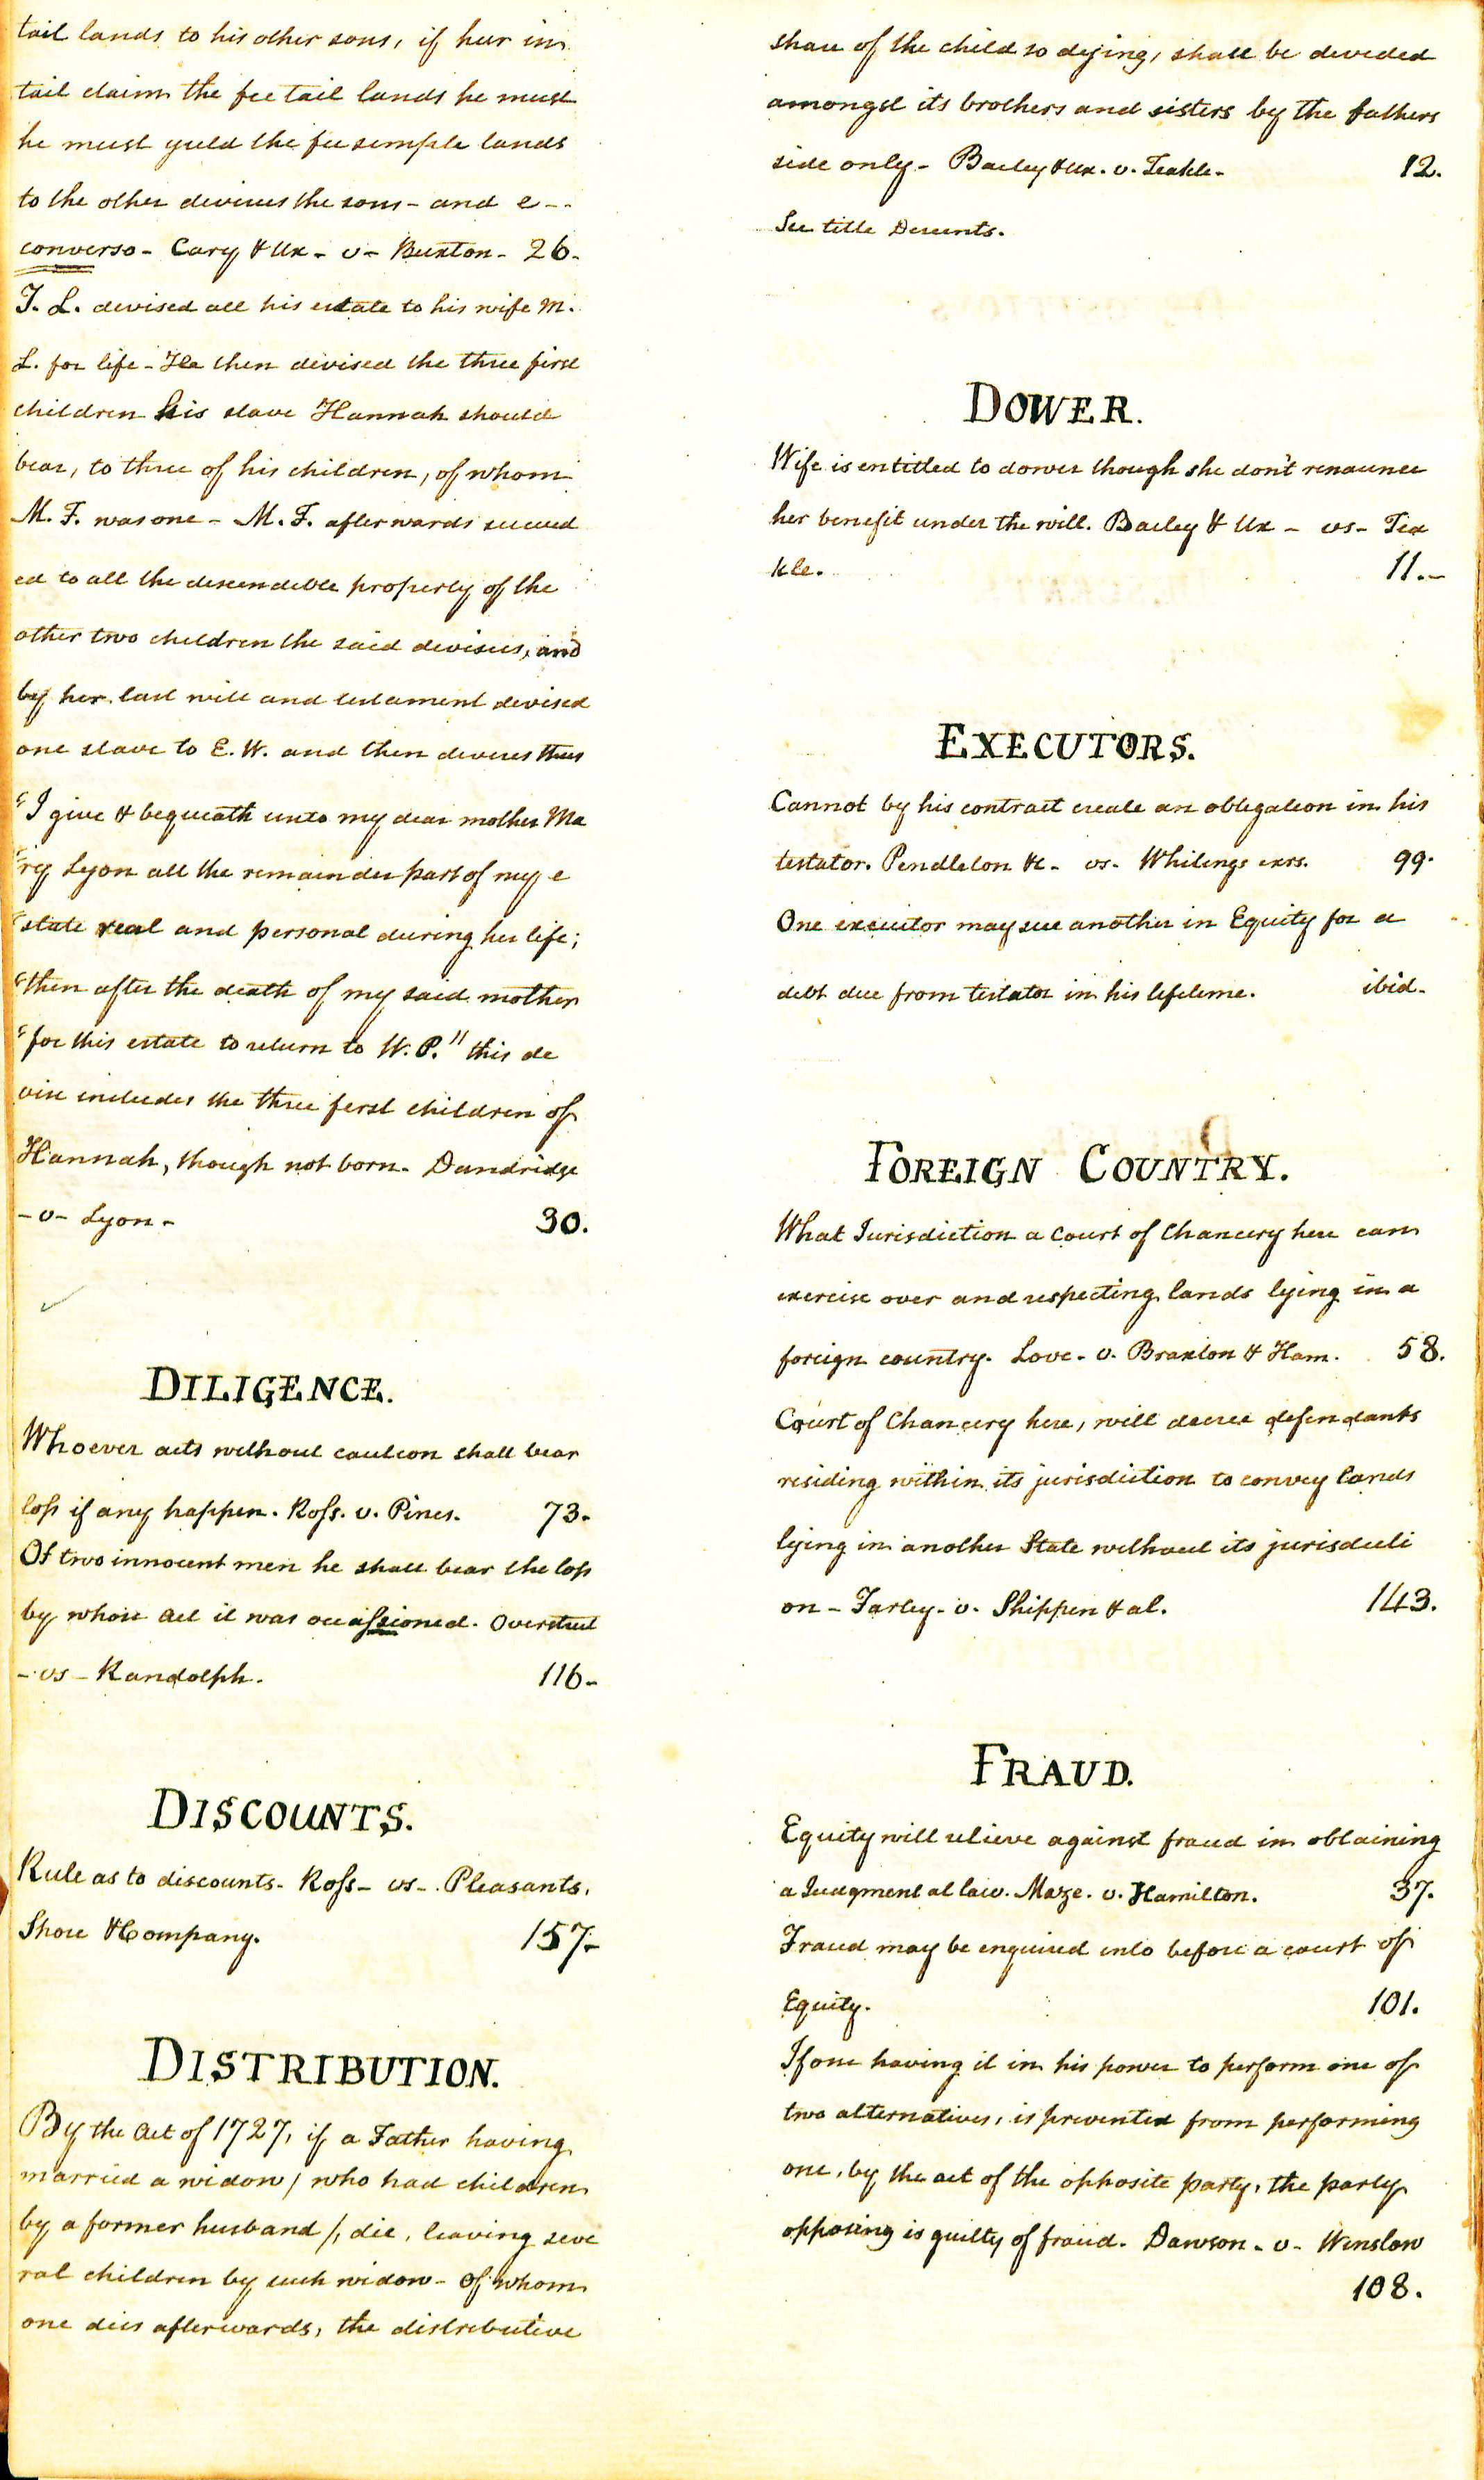 tail lands to his other sons, if heir in
tail claim the fee tail lands he must
he must yield the fee simple lands
to the other devisees the sons - and e--
converso - Cary & Ux - v - Buxton - 26.
J. L. devised all his estate to his wife M.
L. for life - He then devised the three first
children his slave Hannah should
bear, to three of his children, of whom
M. F. was one - M. F. afterwards succeed
ed to all the descendible property of the
other two children the said devisees, and
by her last will and testament devised
one slave to E. W. and then devises thus
"I give & bequeath unto my dear mother Ma
"ry Lyon all the remainder part of my e
"state real and personal during her life;
"then after the death of my said mother
"for this estate to return to W. P." this de
vise includes the three first children of
Hannah, though not born. Dandridge
- v - Lyon - 30.
DILIGENCE.
Whoever acts without caution shall bear
loss if any happen. Ross. v. Pines. 73.
Of two innocent men he shall bear the loss
by whose act it was occassioned. Overstreet
- vs - Randolph. 116.
DISCOUNTS.
Rule as to discounts - Ross - vs - Pleasants,
Shore & Company. 157.
DISTRIBUTION.
By the Act of 1727, if a Father having
married a widow / who had children
by a former husband /, die, leaving seve
ral children by such widow - of whom
one dies afterwards, the distributive
share of the child so dying, shall be devided
amongst its brothers and sisters by the fathers
side only - Bailey & Ux. v. Teakle. 12.
See title Descents.
DOWER.
Wife is entitled to dower though she don't renounce
her benefit under the will. Bailey & Ux - vs - Tea
kle. 11.-
EXECUTORS.
Cannot by his contract create an obligation in his
testator. Pendleton &c. vs. Whitings exrs. 99.
One executor may sue another in Equity for a
debt due from testator in his lifetime. ibid.
FOREIGN COUNTRY.
What Jurisdiction a Court of Chancery here can
exercise over and respecting lands lying in a
foreign country. Love. v. Braxton & Ham. 58.
Court of Chancery here, will decree defendants
residing within its jurisdiction to convey lands
lying in another State without its jurisdicti
on - Farley - v. Shippen & al. 143.
FRAUD.
Equity will relieve against fraud in obtaining
a Judgment at law. Maze. v. Hamilton. 37.
Fraud may be enquired into before a court of
Equity. 101.
If one having it in his power to perform one of
two alternatives, is prevented from performing
one, by the act of the opposite party, the party
opposing is guilty of fraud. Dawson - v - Winslow
108.